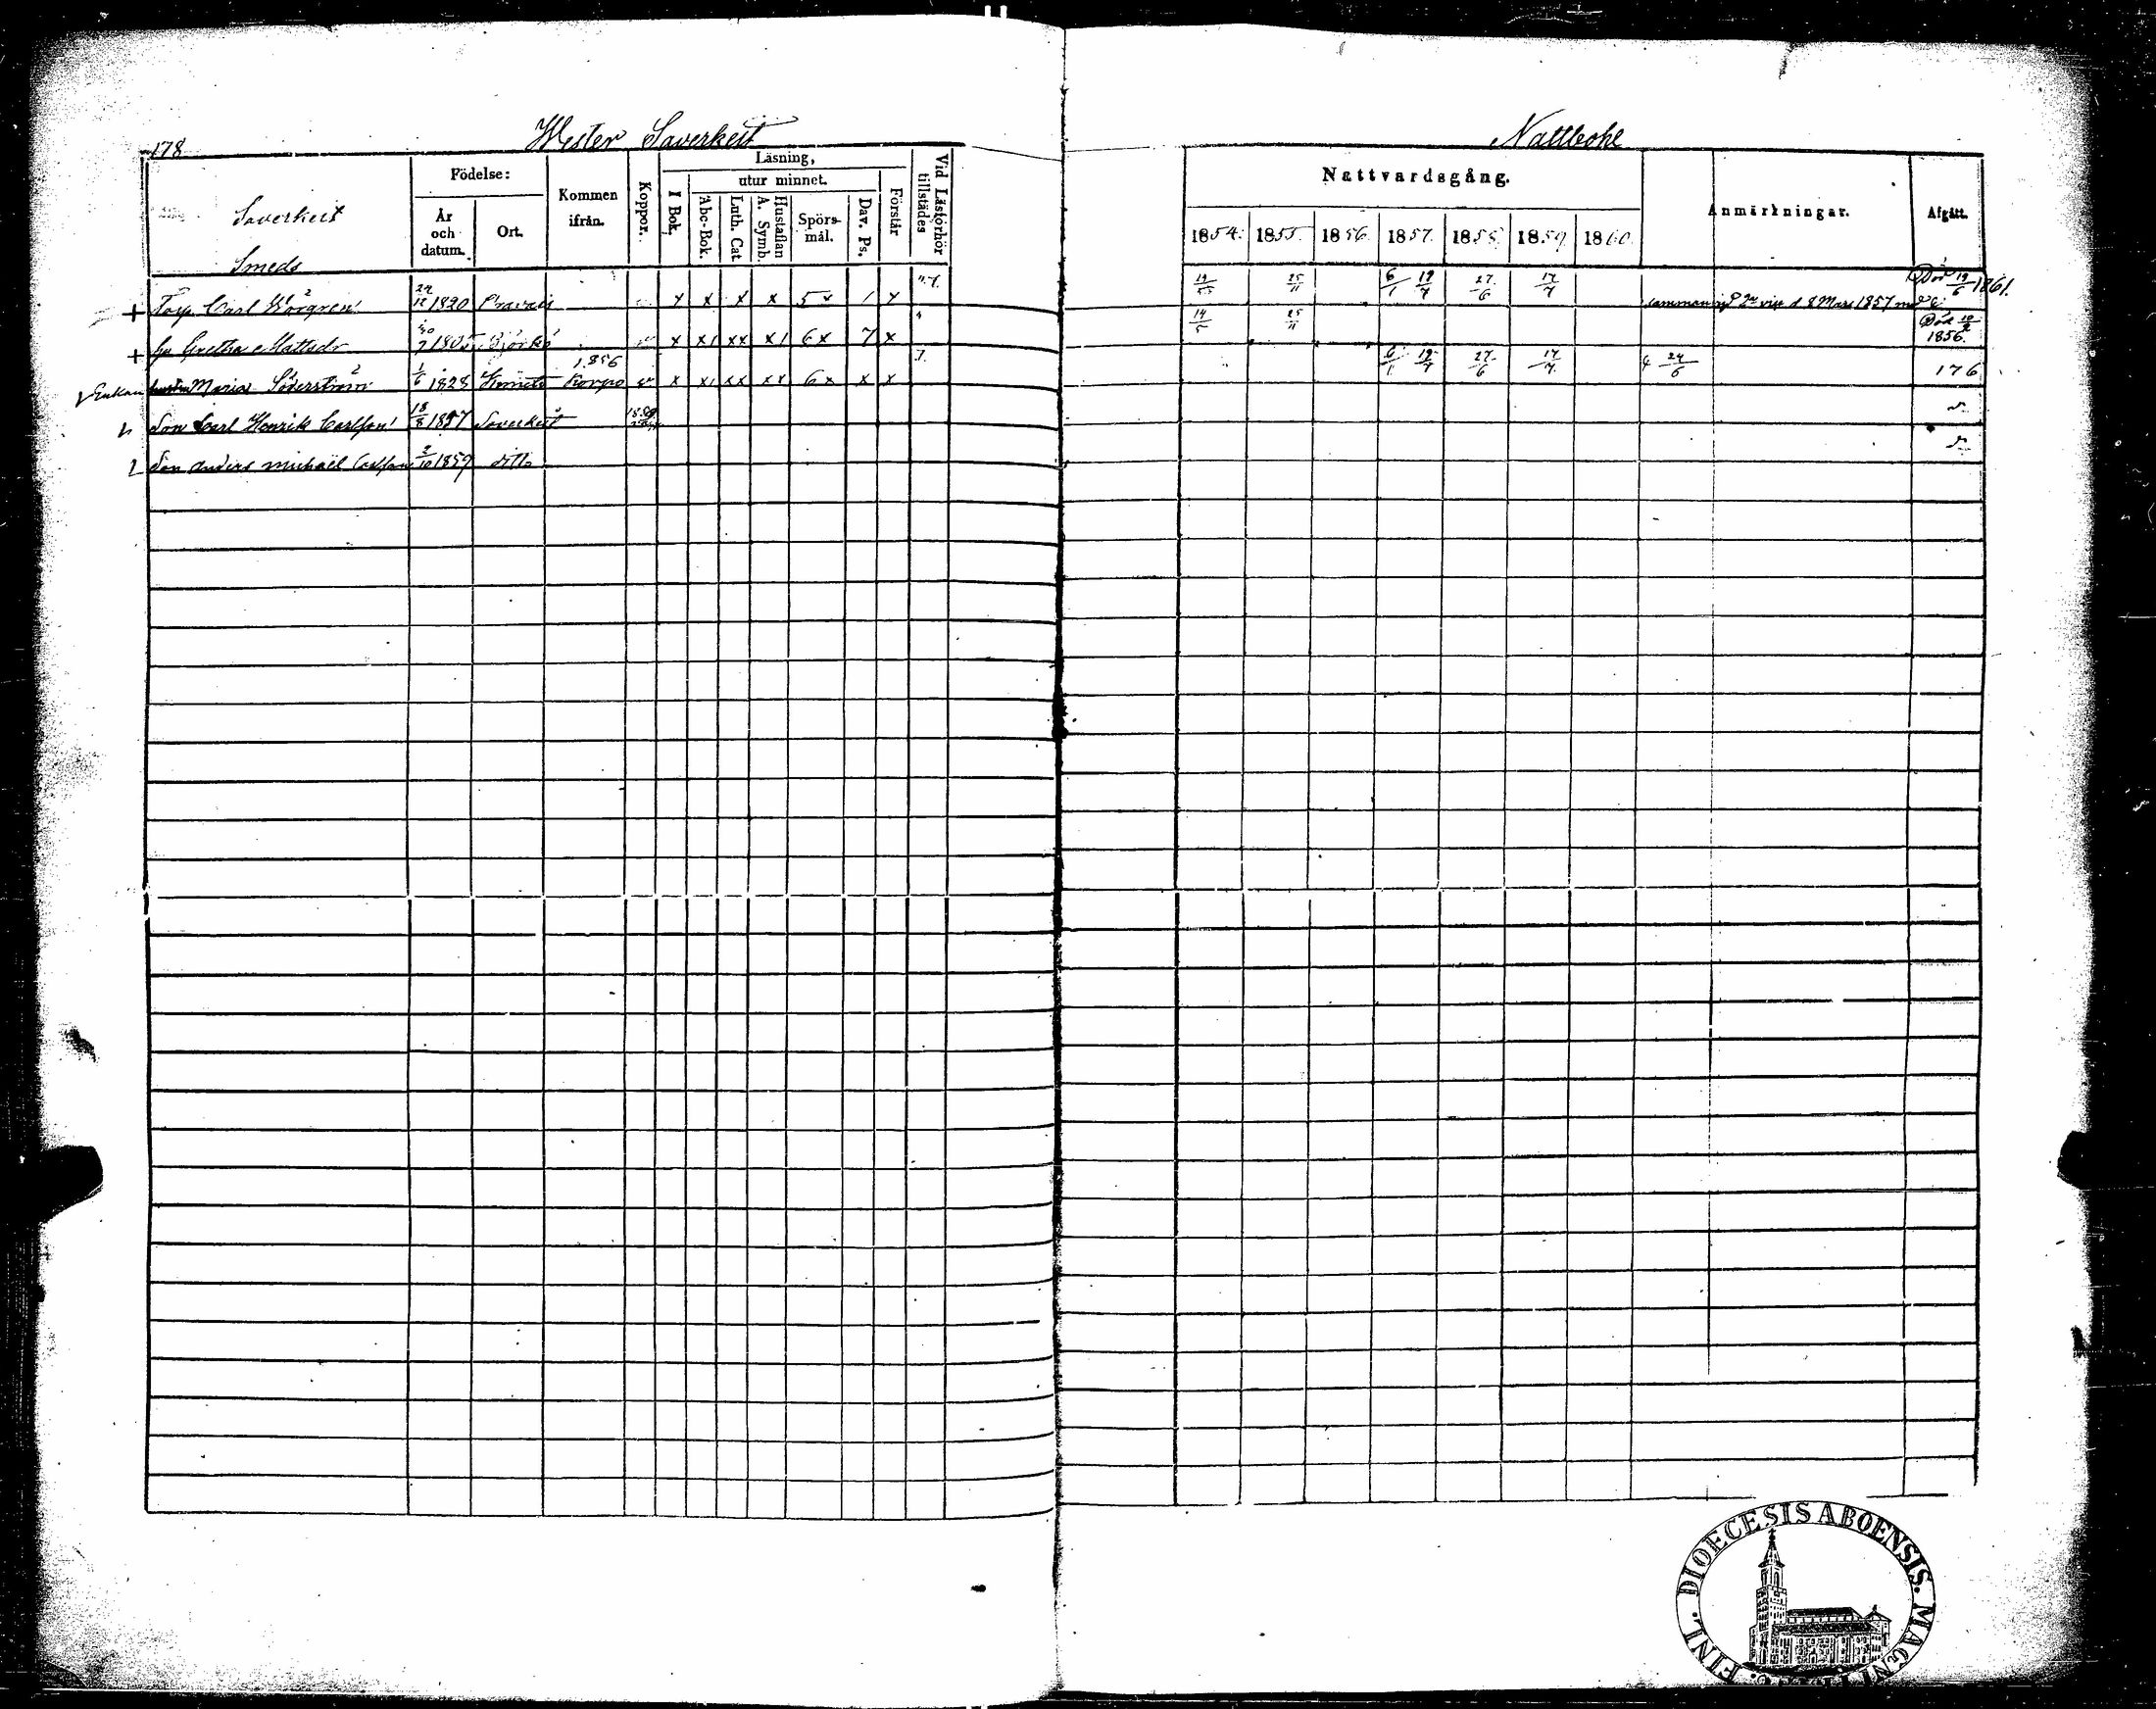 178
Wester Saverkeit
Nattbohl
Saverkeit
Smeds
Födelse:
År och datum.
Ort.
Kommen ifrån.
Koppor.
Läsning,
utur minnet.
I Bok.
Abc-Bok.
Luth. Cat
Hustaflan A. Symb.
Spörs-mål.
Dav. Ps.
Förstår
Vid Läsförhör tillstädes
Nattvardsgång.
1854. 1855. 1856. 1857. 1858. 1859. 1860.
Anmärkningar.
Afgått.
+ Torp Carl 24/12 1820 x x x x 5 x 1 x 25/11 6/1 19/7 27/6 17/7 2 vig d 8 Mars 1857 Död 19/6 1861.
+ hu Gretha Mattsdr Björkö x x1 xx x1 6x 7 x 14/5 25/11 Död 1856.
Enkan Maria Söderström 1/6 1828 Kimito 1856 Korpo x x1 xx xx 6x x x 6/1 19/7 27/6 17/7 24/6 176
Son Carl Henrik Carlsson 18/8 1857 Saverkeit
Son Anders Michaël Carlsson 2/10 1859 ditto
FINL. DIOECESIS ABOENSIS. MAGNI